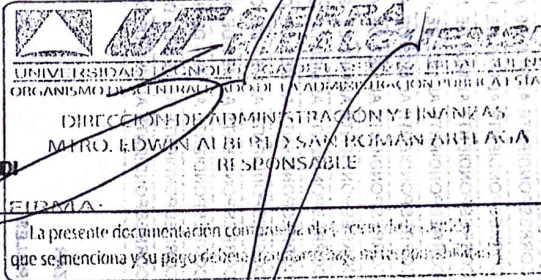 UT SIERRA
HIDALGUENSE
UNIVERSIDAD TECNOLÓGICA DE LA SIERRA HIDALGUENSE
ORGANISMO DESCENTRALIZADO DE LA ADMINISTRACION PUBLICA ESTATAL
DIRECCIÓN DE ADMINISTRACIÓN Y FINANZAS
MTRO. EDWIN ALBERTO SAN ROMÁN ARTEAGA
RESPONSABLE
DI
FIRMA:
La presente documentación comprueba el
que se menciona y su pago deberá bajo mi responsabilidad